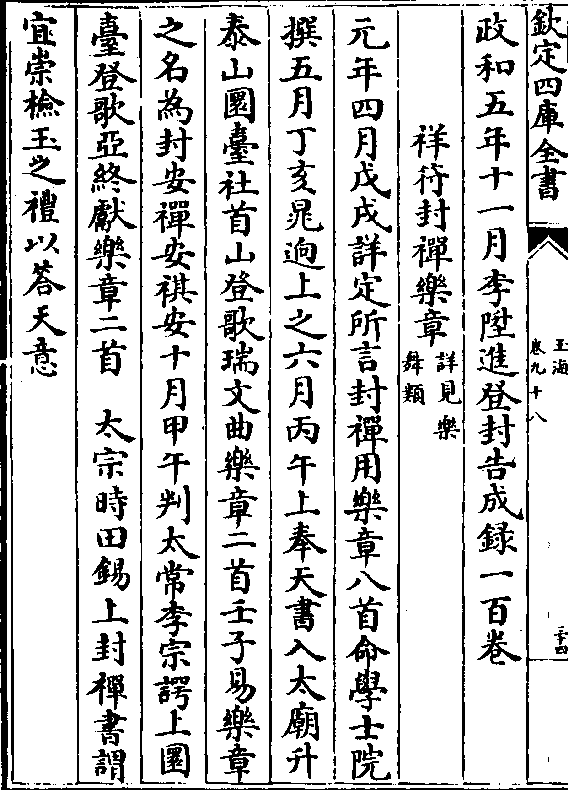 欽定四庫全書
玉海
卷九十八
二十四
政和五年十一月李陞進登封告成録一百卷
祥符封禪樂章詳見樂
舞類
元年四月戊戌詳定所言封禪用樂章八首命學士院
撰五月丁亥晁逈上之六月丙午上奉天書入太廟升
泰山圜臺社首山登歌瑞文曲樂章二首壬子易樂章
之名為封安禪安祺安十月甲午判太常李宗諤上圜
臺登歌亞終獻樂章二首　太宗時田錫上封禪書謂
宜崇檢玉之禮以答天意